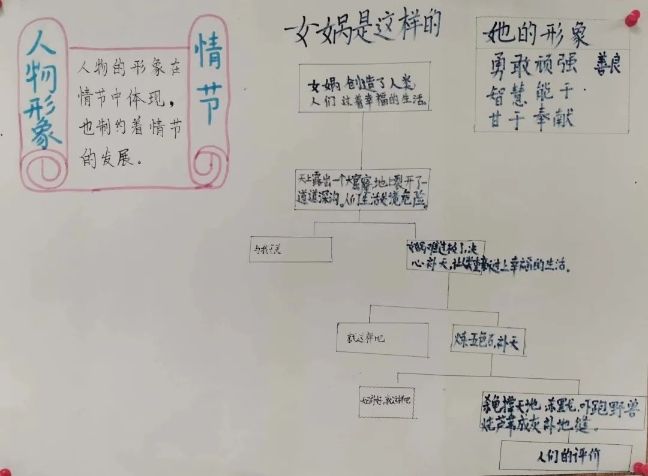 女娲是这样的
人物形象
情节
人物的形象在
情节中体现，
也制约着情节
的发展。
她的形象
勇敢顽强 善良
智慧能干
甘于奉献
女娲创造了人类，
人们过着幸福的生活。
天上露出一个大窟窿，地上裂开了一
道道深沟。人们生活处境危险。
女娲难过极了，决
心补天，让人们重新过上幸福的生活。
就这样吧
炼五色石，补天
杀龟撑天地，杀黑龙，吓跑野兽
烧芦苇成灰补地缝。
人们的评价